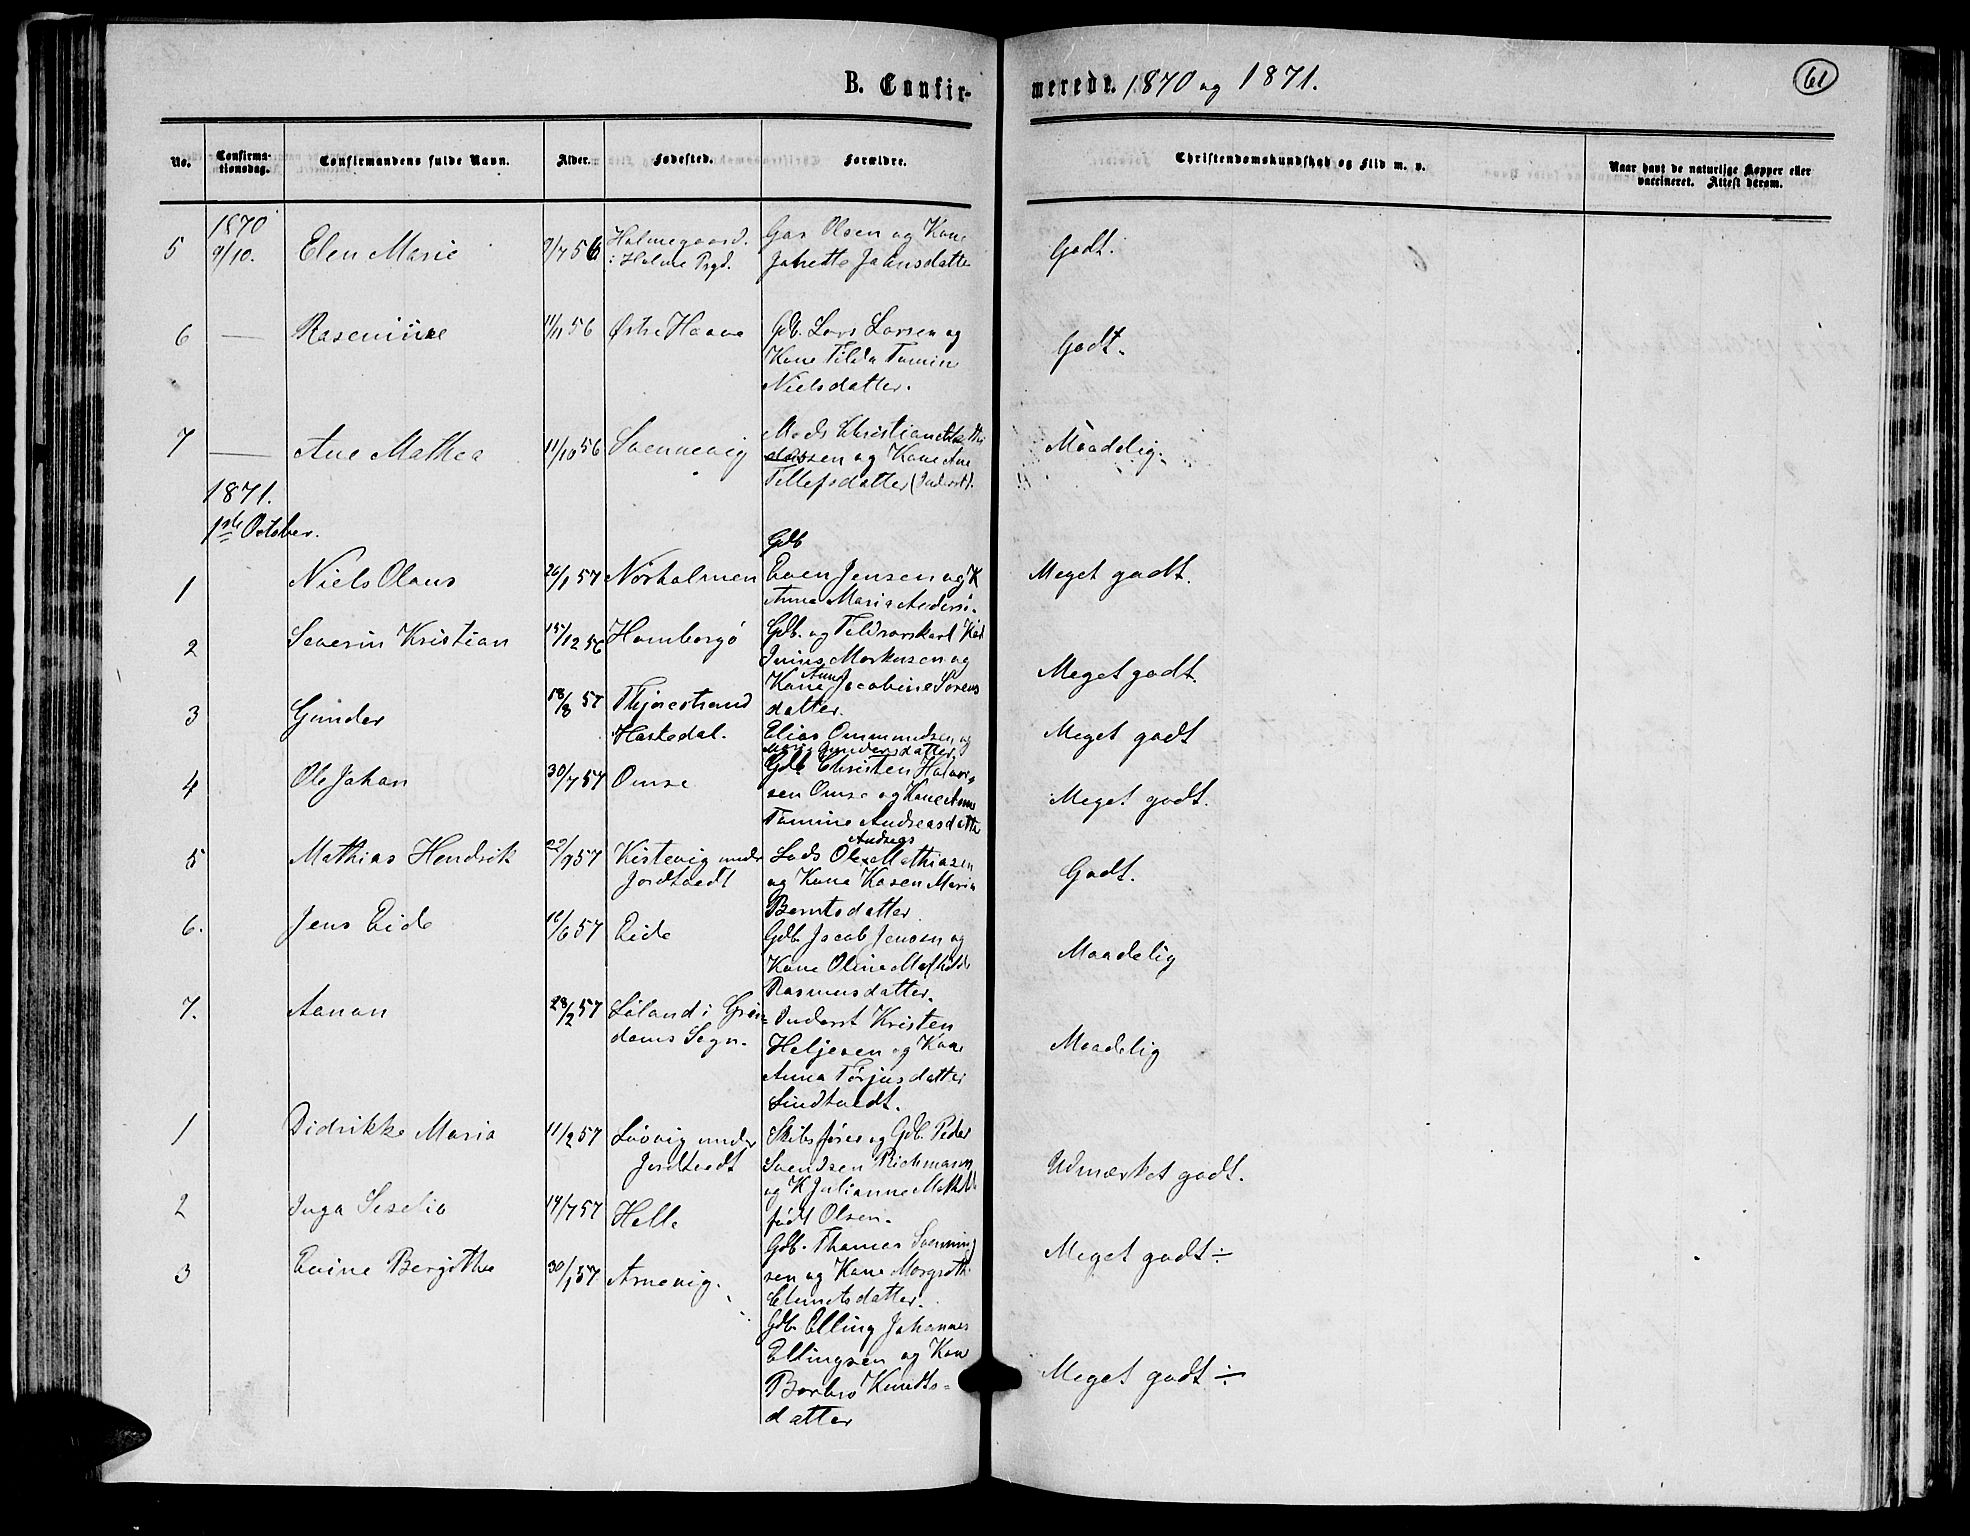 B. Confir-
merede. 1870 og 1871.
61
No.
Confirma-
tionsdag.
Confirmandens fulde Navn.
Alder.
Fødested.
Forældre.
Christendomskundskab og Flid m. v.
Naar havt de naturlige Kopper eller
vaccineret. Attest derom.
1870
5 9/10. Elen Marie 9/7 56 Holmegaard
i Holme Prgd. Olsen og Kone
Godt.
6 — Rasemine 11/11 56 Østre Haave Gdb. Lars Larsen og
Kone Tilda Tomine
Nielsdatter.
Godt.
7 — Ane Mathea 11/10 56 Svennevig Mads Christian
sen og Kone Ane
Tellefsdatter (Inderst).
Maadelig.
1871.
1ste October.
Gdb
1 Niels Olaus 26/1 57 Nørholmen Even Jensen og K
Anna Maria Anders.
Meget godt.
2 Severin Kristian 15/12 56 Homborgø Gdb. og
Markusen og
Kone Anne Jacobine Sørens
datter.
Meget godt.
3 Gunder 18/8 57
Hastedal.
Elias Ommundsen og
Maria Gundersdatter
Meget godt
4 Ole Johan 30/7 57 Omre Gdb Christen Halvor-
sen Omre og Kone Anne
Tomine Andreasdatter
Meget godt.
5 Mathias Hendrik 22/9 57 Kistevig under
Jordtvedt
Lods Ole Andreas Mathiasen
og Kone Karen Maria
Berntsdatter
Godt.
6. Jens Eide 16/6 57 Eide Gdb. Jacob Jensen og
Kone Oline Mathilde
Rasmusdatter.
Maadelig
7. Aanon 28/2 57 Løland i Gren-
doms Sogn.
Inderst Kristen
Heljesen og Kone
Anna Tørjusdatter
Lindtvedt.
Maadelig
1 Didrikke Maria 11/2 57 Løvvig under
Jordtvedt
Skibsfører og Gdb. Peder
Svendsen Richmann
og K Julianne Mathilde
født Olsen.
Udmærket godt.
2 Inga Seselia 14/7 57 Helle Gdb. Thomas Svenning
sen og Kone Margrethe
Clemetsdatter.
Meget godt ÷
3 Evine Bergithe 30/1 57 Arnevig.
Gdb. Elling Johannes
Ellingsen og Kone
Barbro Knudts-
datter
Meget godt ÷